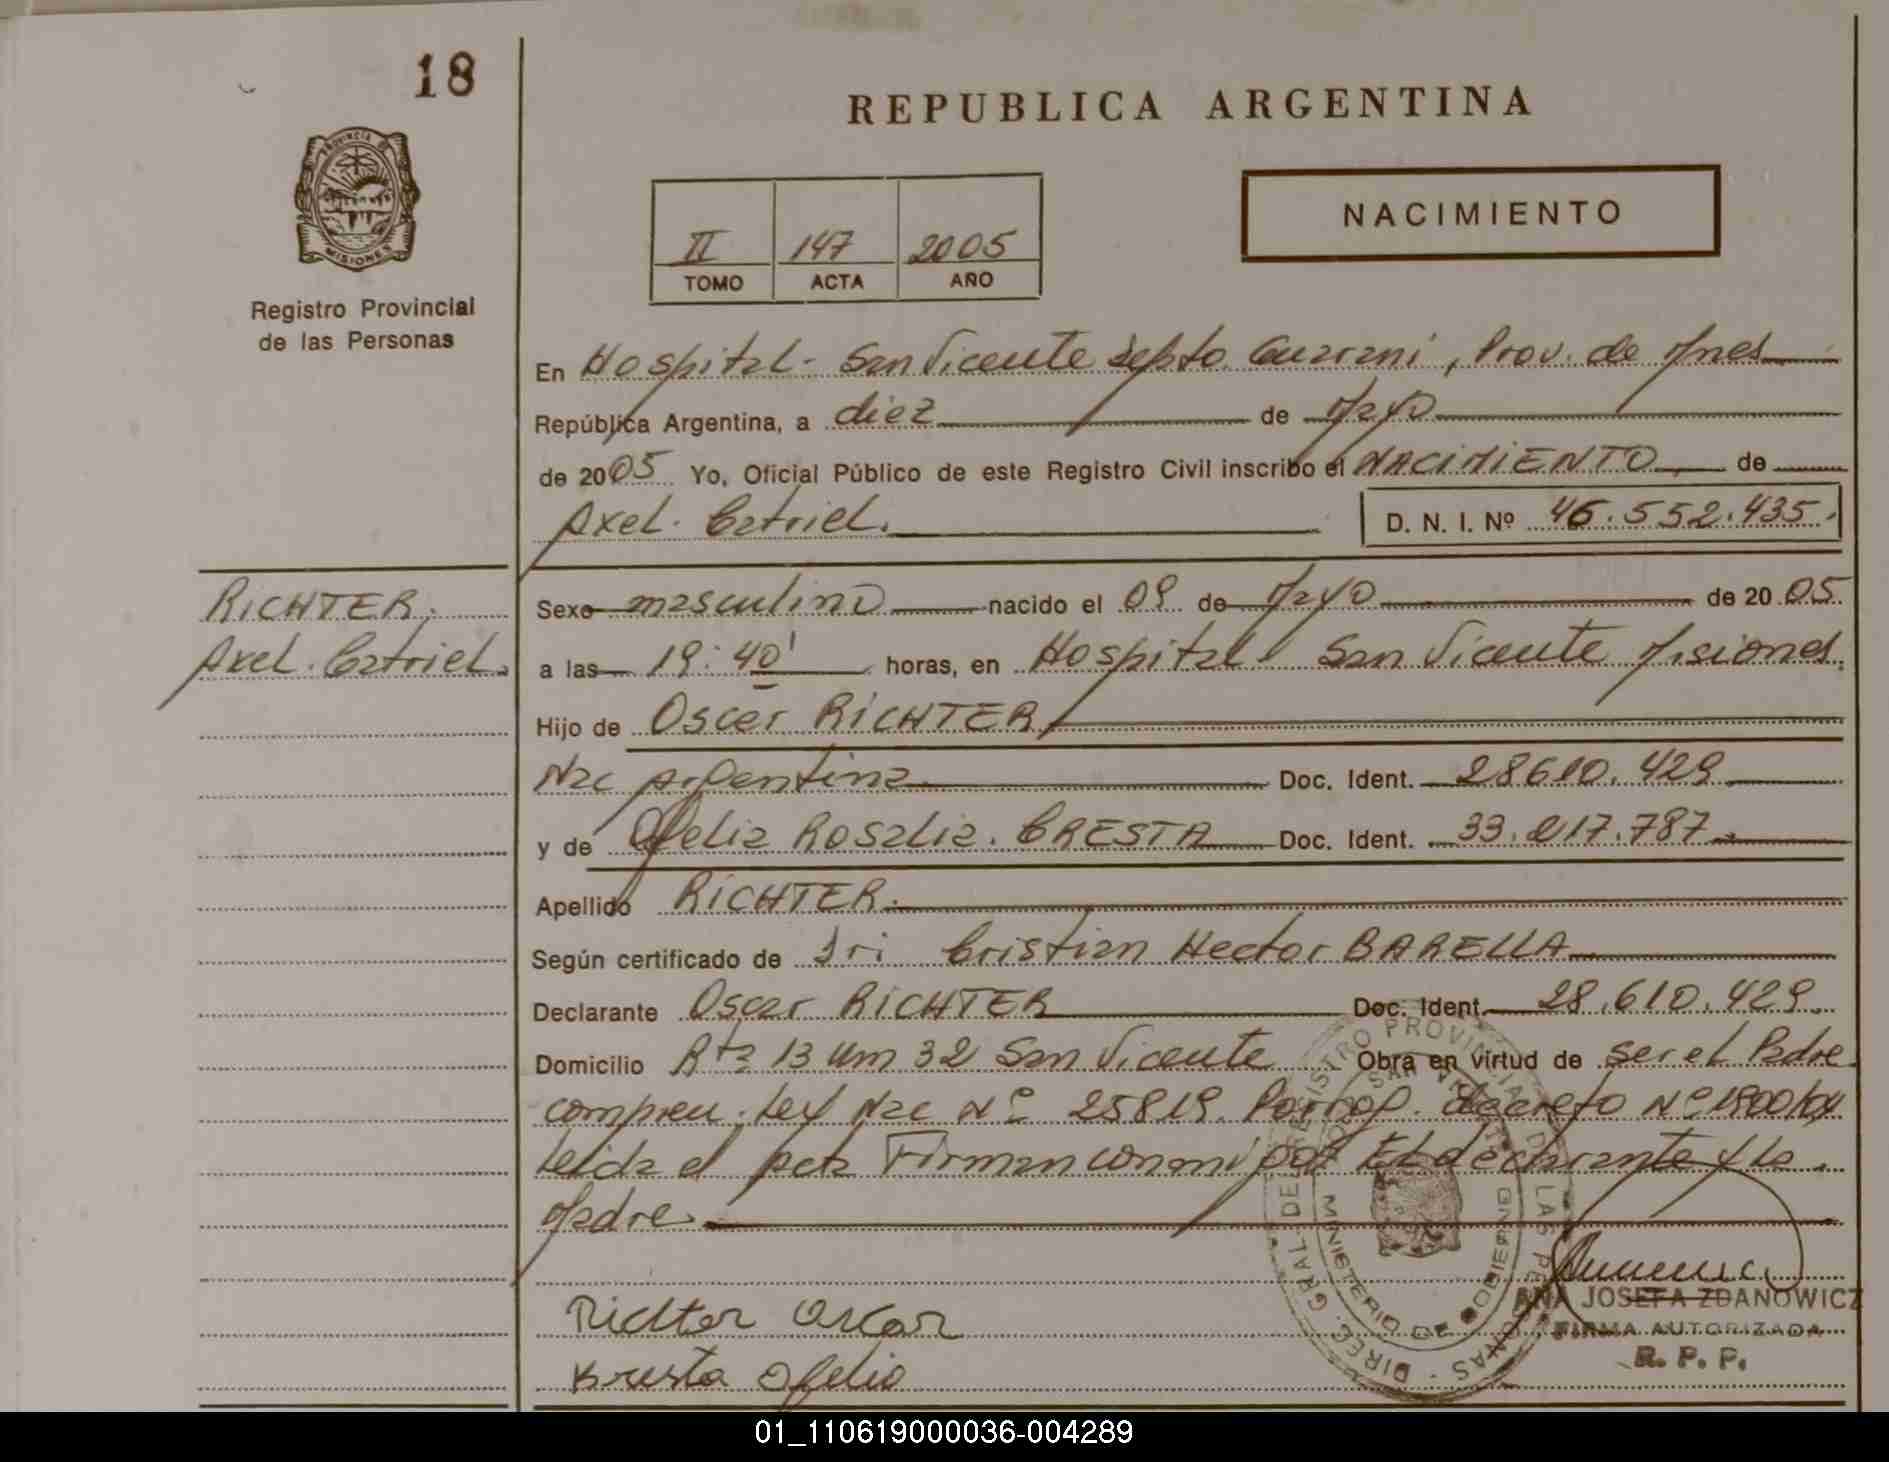 18
REPUBLICA ARGENTINA
PROVINCIA DE
MISIONES
Registro Provincial
de las Personas
II 147 2005
TOMO ACTA AÑO
NACIMIENTO
En Hospital - San Vicente Depto. Guarani, Prov. de Mnes
República Argentina, a diez de Mayo
de 2005 Yo, Oficial Público de este Registro Civil inscribo el NACIMIENTO de
Axel. Catriel. D. N. I. Nº 46.552.435.
RICHTER.
Axel. Catriel.
Sexo masculino nacido el 09 de Mayo de 2005.
a las 19:40' horas, en Hospital San Vicente Misiones.
Hijo de Oscar RICHTER
Nac Argentina Doc. Ident. 28610.429
y de Ofelia Rosalia. CRESTA Doc. Ident. 33.217.787.
Apellido RICHTER.
Según certificado de Cristian Hector BARELLA
Declarante Oscar RICHTER Doc. Ident. 28.610.429.
Domicilio Rta 13 Km 32 San Vicente Obra en virtud de ser el Padre
Ley Nac Nº 25819. decreto Nº 1800/04
Leida el Acta Firman conmigo El declarante y la
Madre
Richter Oscar
Kresta Ofelia
DIREC. GRAL. DEL REGISTRO PROVINCIAL DE LAS PERSONAS
SAN VICENTE
MINISTERIO DE GOBIERNO
ANA JOSEFA ZDANOWICZ
FIRMA AUTORIZADA
R. P. P.
01_110619000036-004289